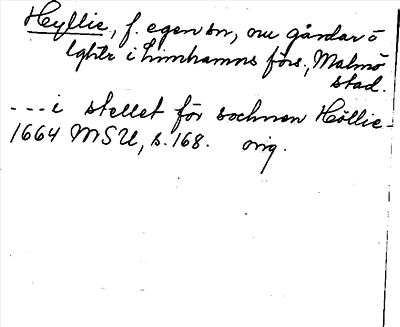 Hyllie, f. egen sn, nu gårdar o
lghtr i Limhamns förs., Malmö
stad.
---i stellet för sochnen Höllie-
1664 MSU, s. 168. orig.